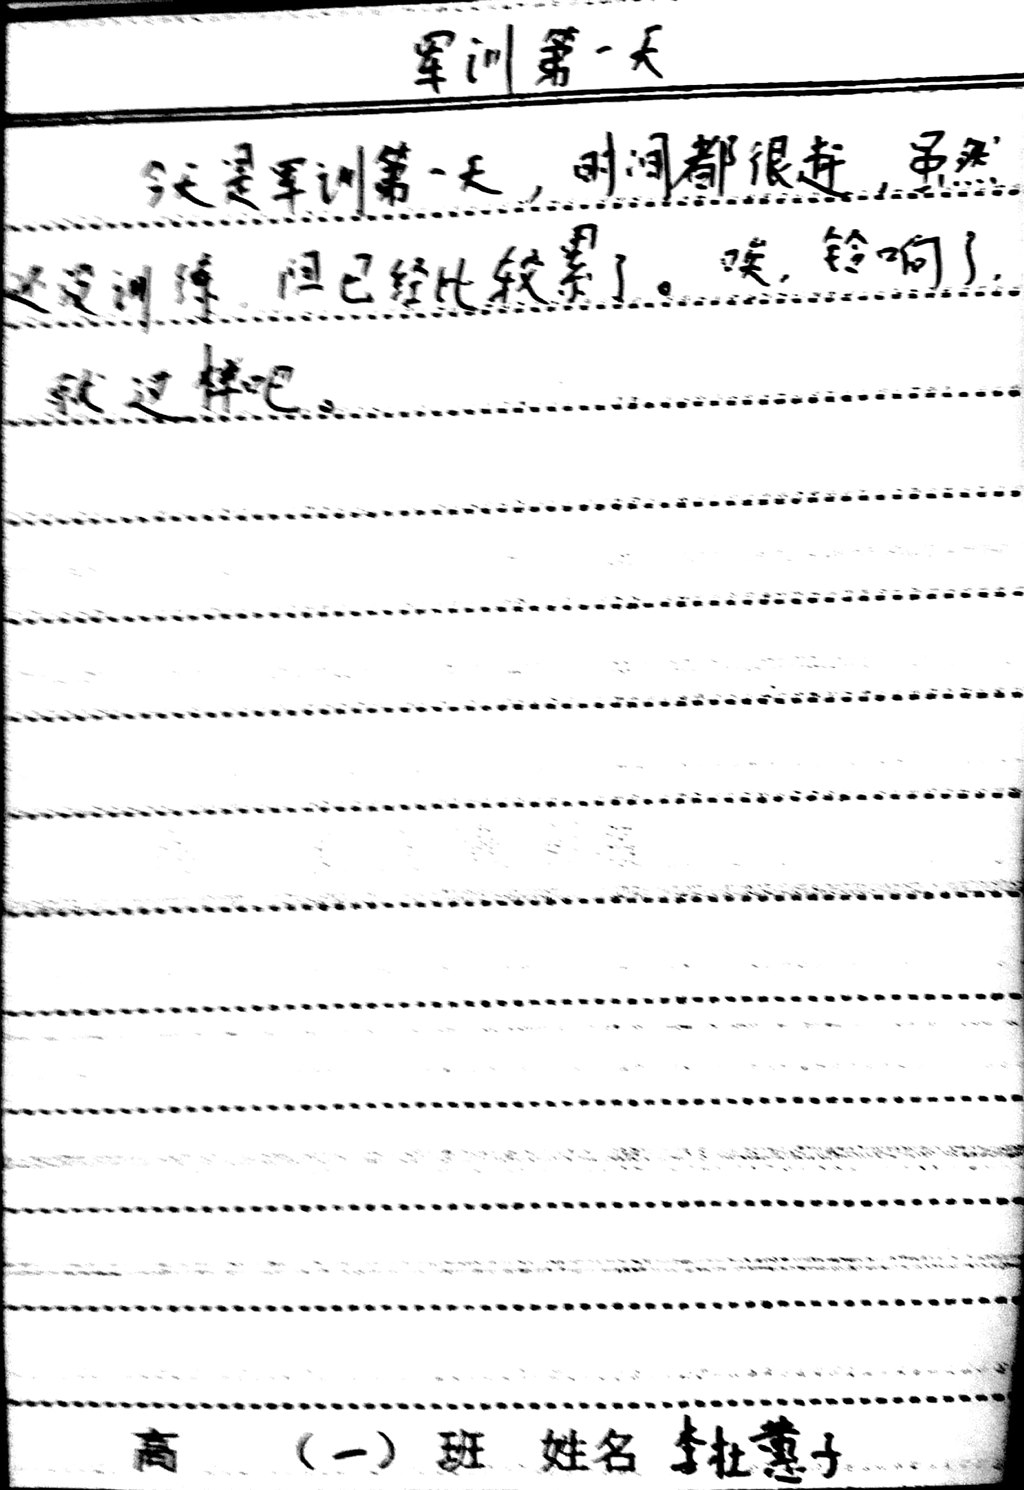 军训第一天
今天是军训第一天，时间都很赶，虽然
还没训练，但已经比较累了。唉，铃响了，
就这样吧。
高 （一） 班 姓名 李杜蕙子